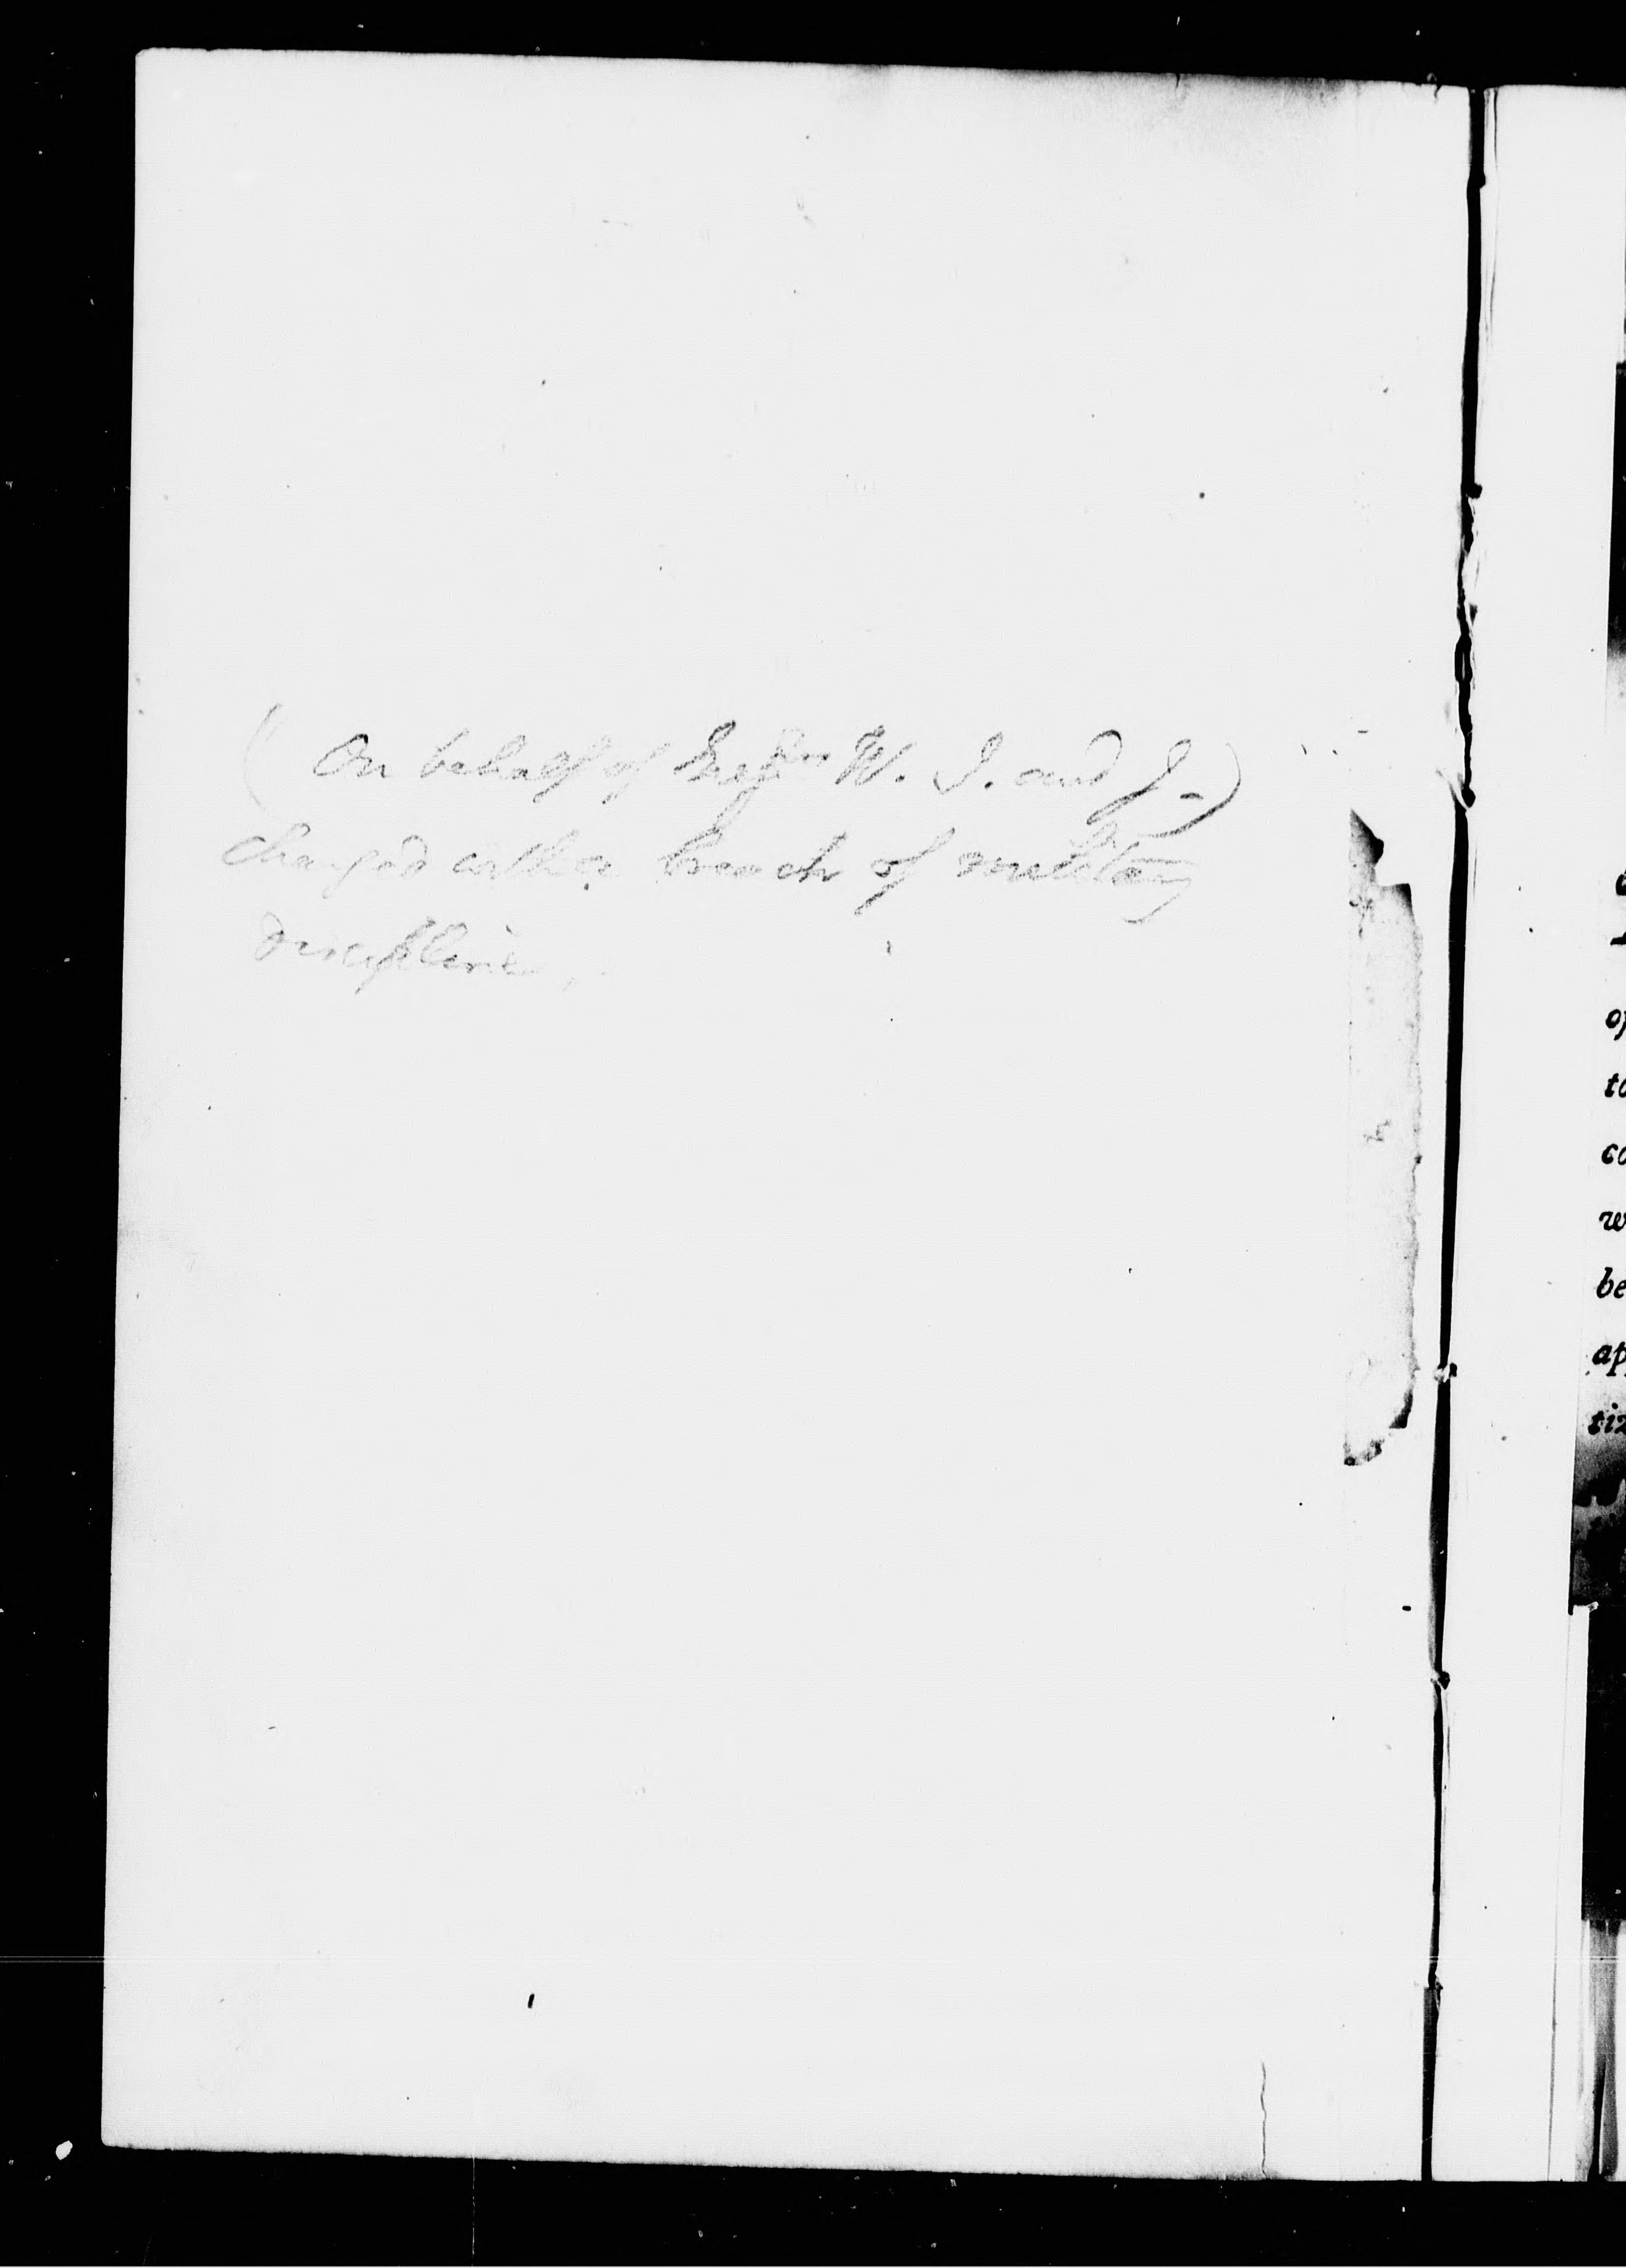 (On behalf of W. J. and J-)
charged with a breach of military
discipline,
of
to
co
w
be
ap
tiz